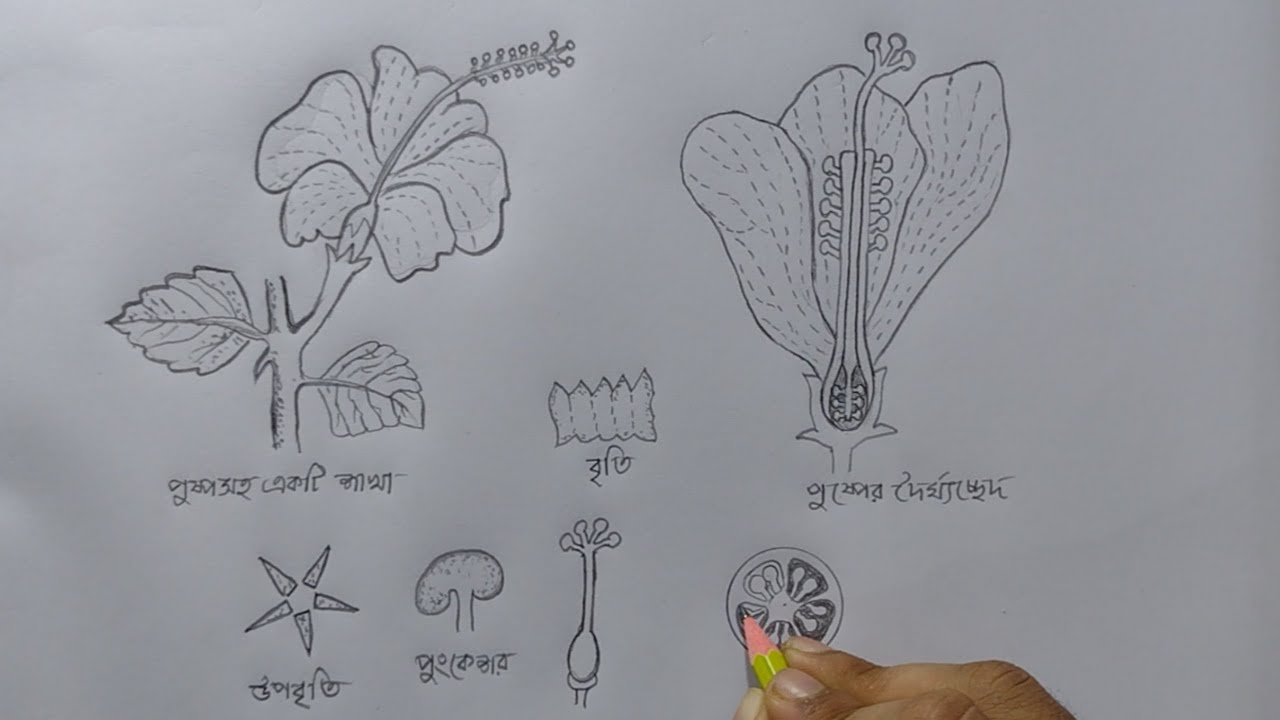 পুষ্পসহ একটি শাখা
বৃতি
পুষ্পের দৈর্ঘ্যচ্ছেদ
উপবৃতি
পুংকেশর